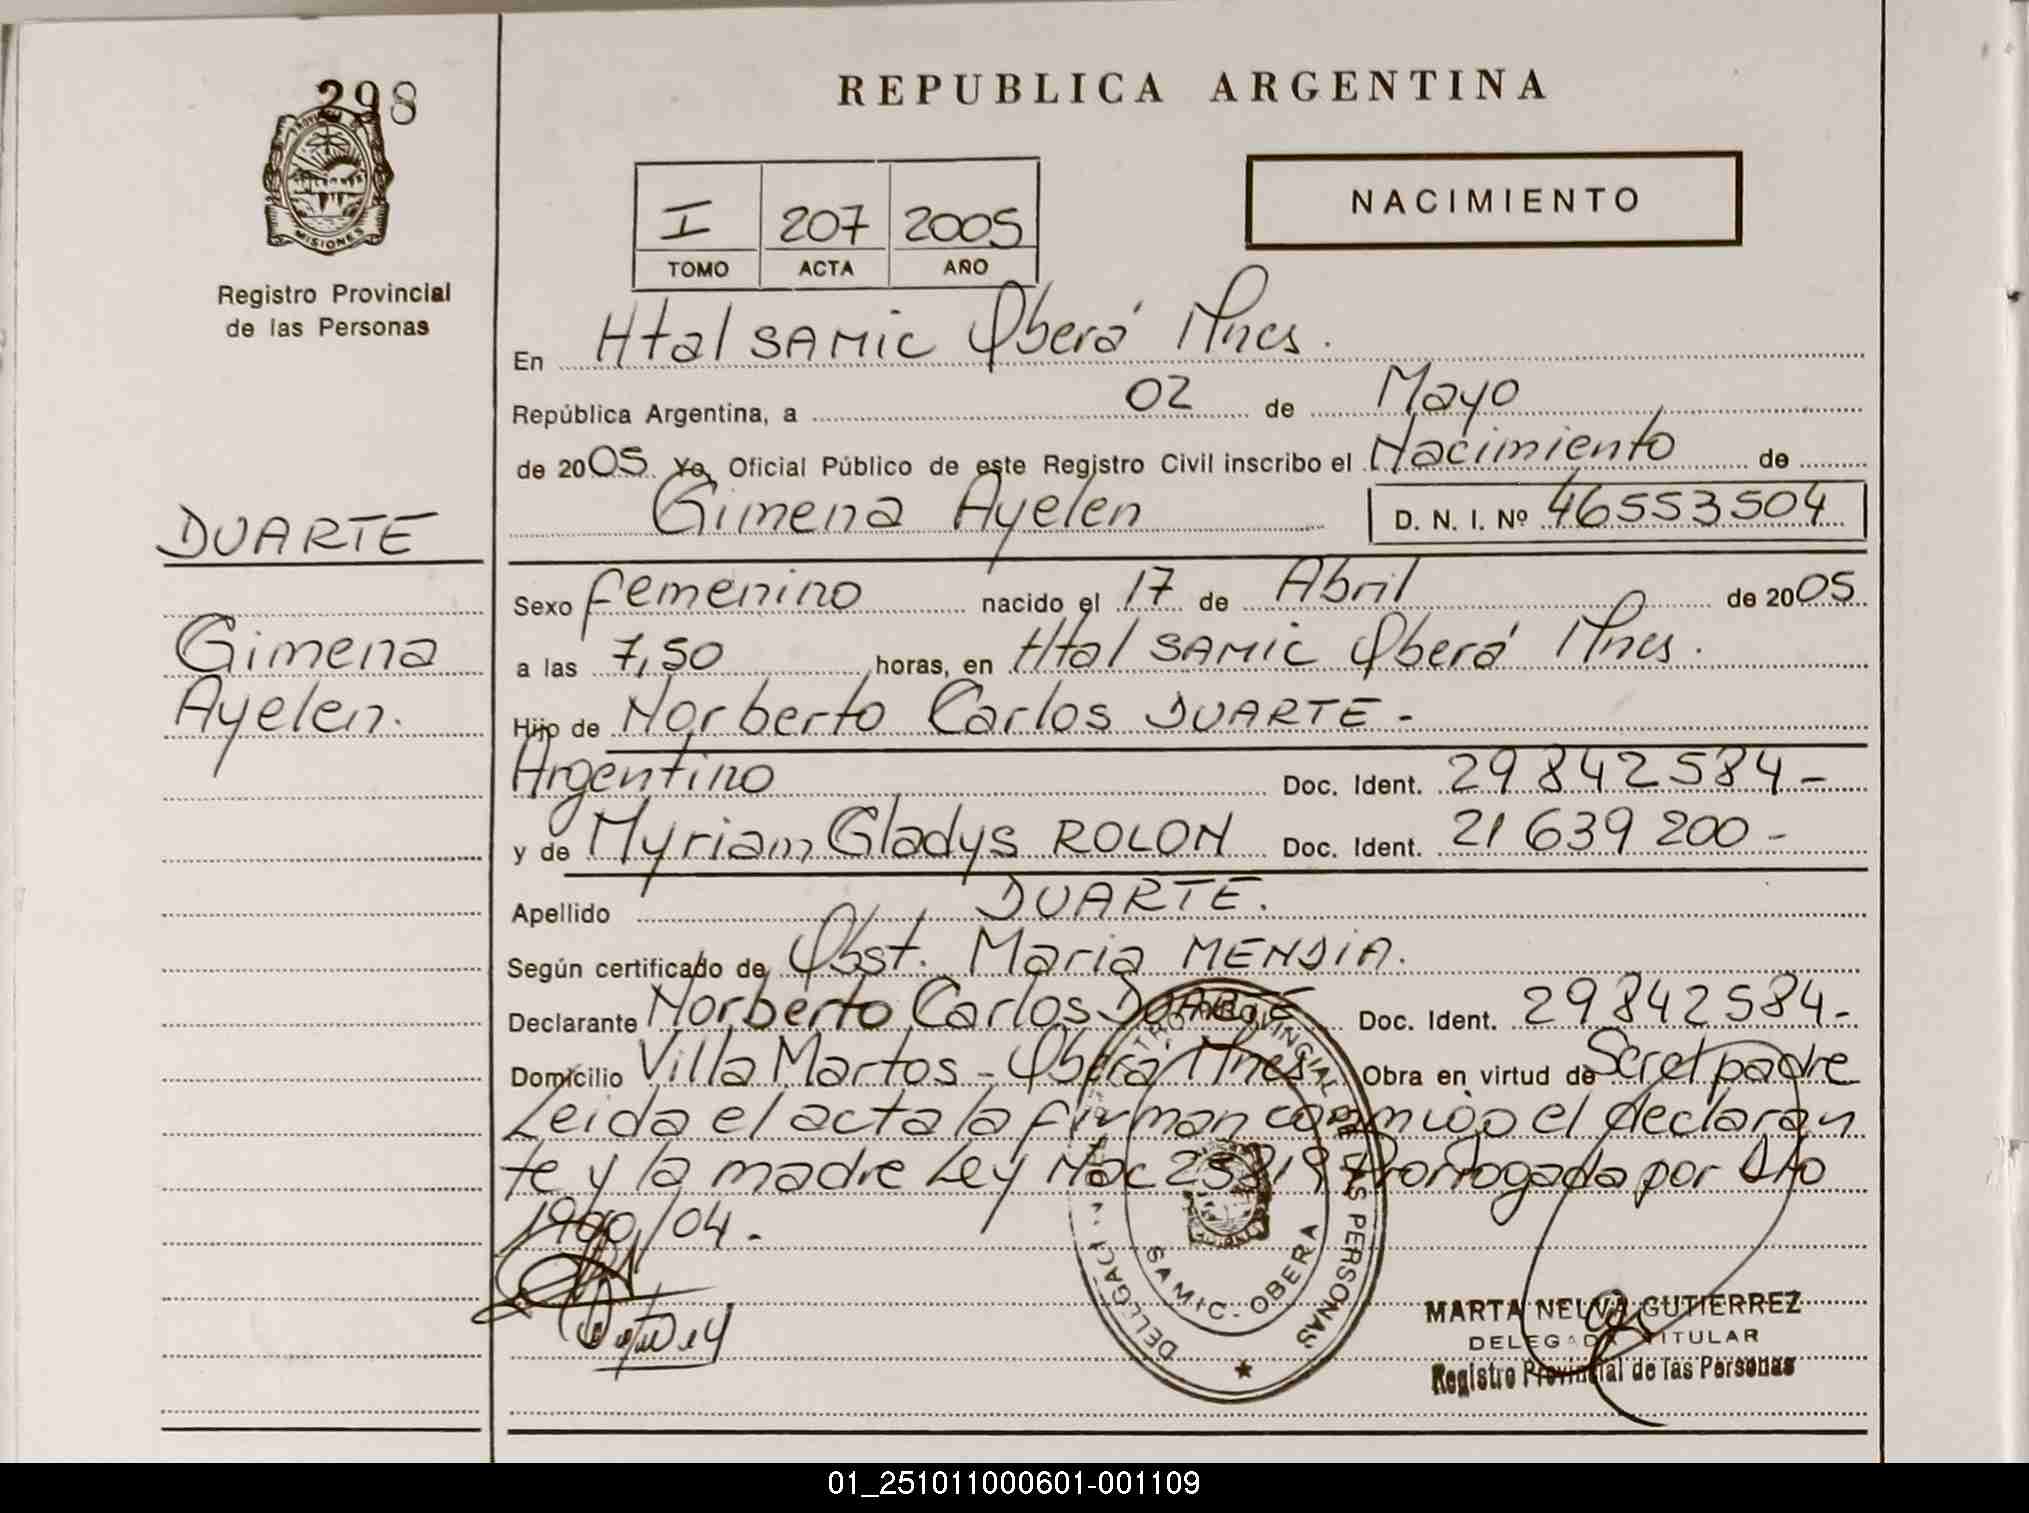 298
PROVINCIA DE
MISIONES
Registro Provincial
de las Personas
DUARTE
Gimena
Ayelen.
REPUBLICA ARGENTINA
I 207 2005
TOMO ACTA AÑO
NACIMIENTO
En Htal SAMIC Oberá Mnes.
República Argentina, a 02 de Mayo
de 2005 Yo, Oficial Público de este Registro Civil inscribo el Nacimiento de
Gimena Ayelen D. N. I. Nº 46553504
Sexo femenino nacido el 17 de Abril de 2005
a las 7,50 horas, en Htal SAMIC Oberá Mnes.
Hijo de Norberto Carlos DUARTE -
Argentino Doc. Ident. 29842584-
y de Myriam Gladys ROLON Doc. Ident. 21639200-
Apellido DUARTE.
Según certificado de Obst. Maria MENDIA.
Declarante Norberto Carlos DUARTE Doc. Ident. 29842584-
Domicilio Villa Martos - Oberá Mnes. Obra en virtud de ser el padre
Leida el acta la firman conmigo el declaran
te y la madre Ley Nac 25819 Prorrogada por Dto
/04.-
REGISTRO PROVINCIAL DE LAS PERSONAS
DELEGACION
SAMIC - OBERA
MARTA NELVA GUTIERREZ
DELEGADA TITULAR
Registro Provincial de las Personas
01_251011000601-001109